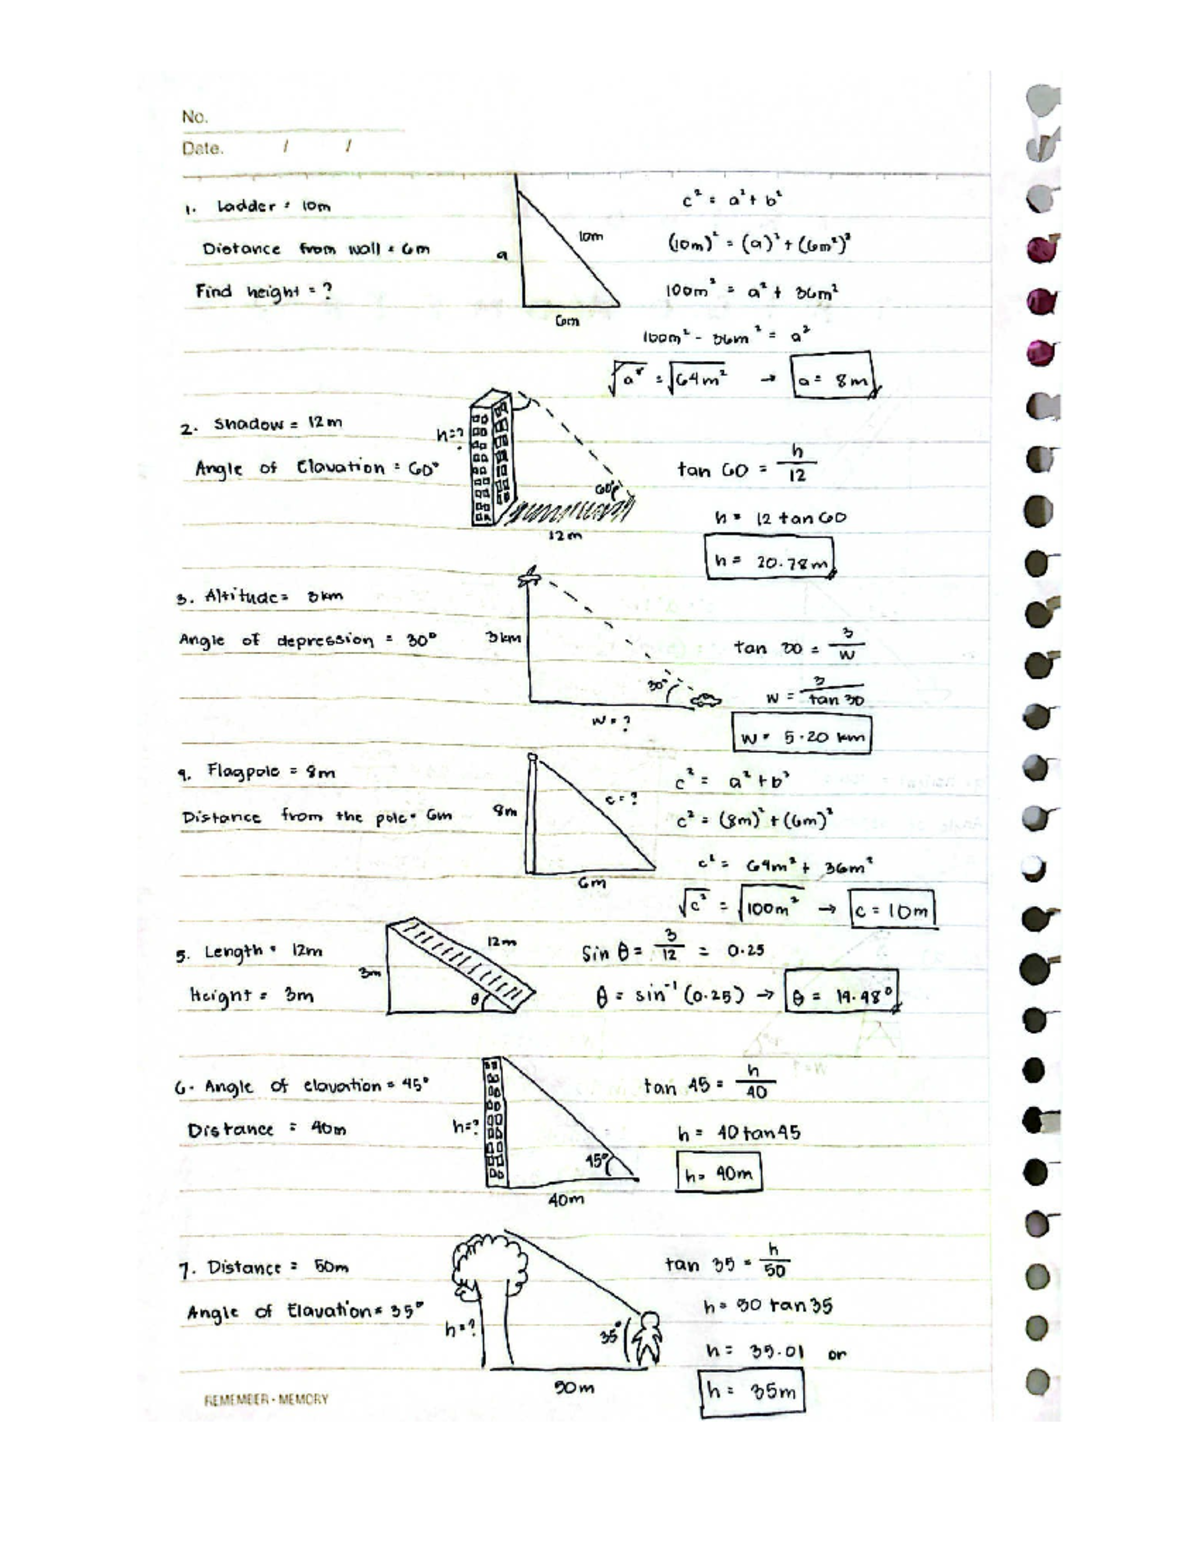 No.
Date. / /
1. Ladder = 10m
Distance from wall = 6m
Find height = ?
a
10m
6m
c² = a² + b²
(10m)² = (a)² + (6m²)²
100m² = a² + 36m²
100m² - 36m² = a²
√a² = √64m² → a = 8m
2. Shadow = 12m
Angle of Elavation = 60°
h=?
60°
12m
tan 60 = h/12
h = 12 tan 60
h = 20.78m
3. Altitude = 3km
Angle of depression = 30°
3km
30°
w = ?
tan 30 = 3/w
w = 3/tan 30
w = 5.20 km
4. Flagpole = 8m
Distance from the pole = 6m
8m
c = ?
6m
c² = a² + b²
c² = (8m)² + (6m)²
c² = 64m² + 36m²
√c² = √100m² → c = 10m
5. Length = 12m
Height = 3m
3m
12m
θ
Sin θ = 3/12 = 0.25
θ = sin⁻¹ (0.25) → θ = 14.48°
6. Angle of elavation = 45°
Distance = 40m
h=?
45°
40m
tan 45 = h/40
h = 40 tan 45
h = 40m
7. Distance = 50m
Angle of Elavation = 35°
h=?
35°
50m
tan 35 = h/50
h = 50 tan 35
h = 35.01 or
h = 35m
REMEMBER - MEMORY